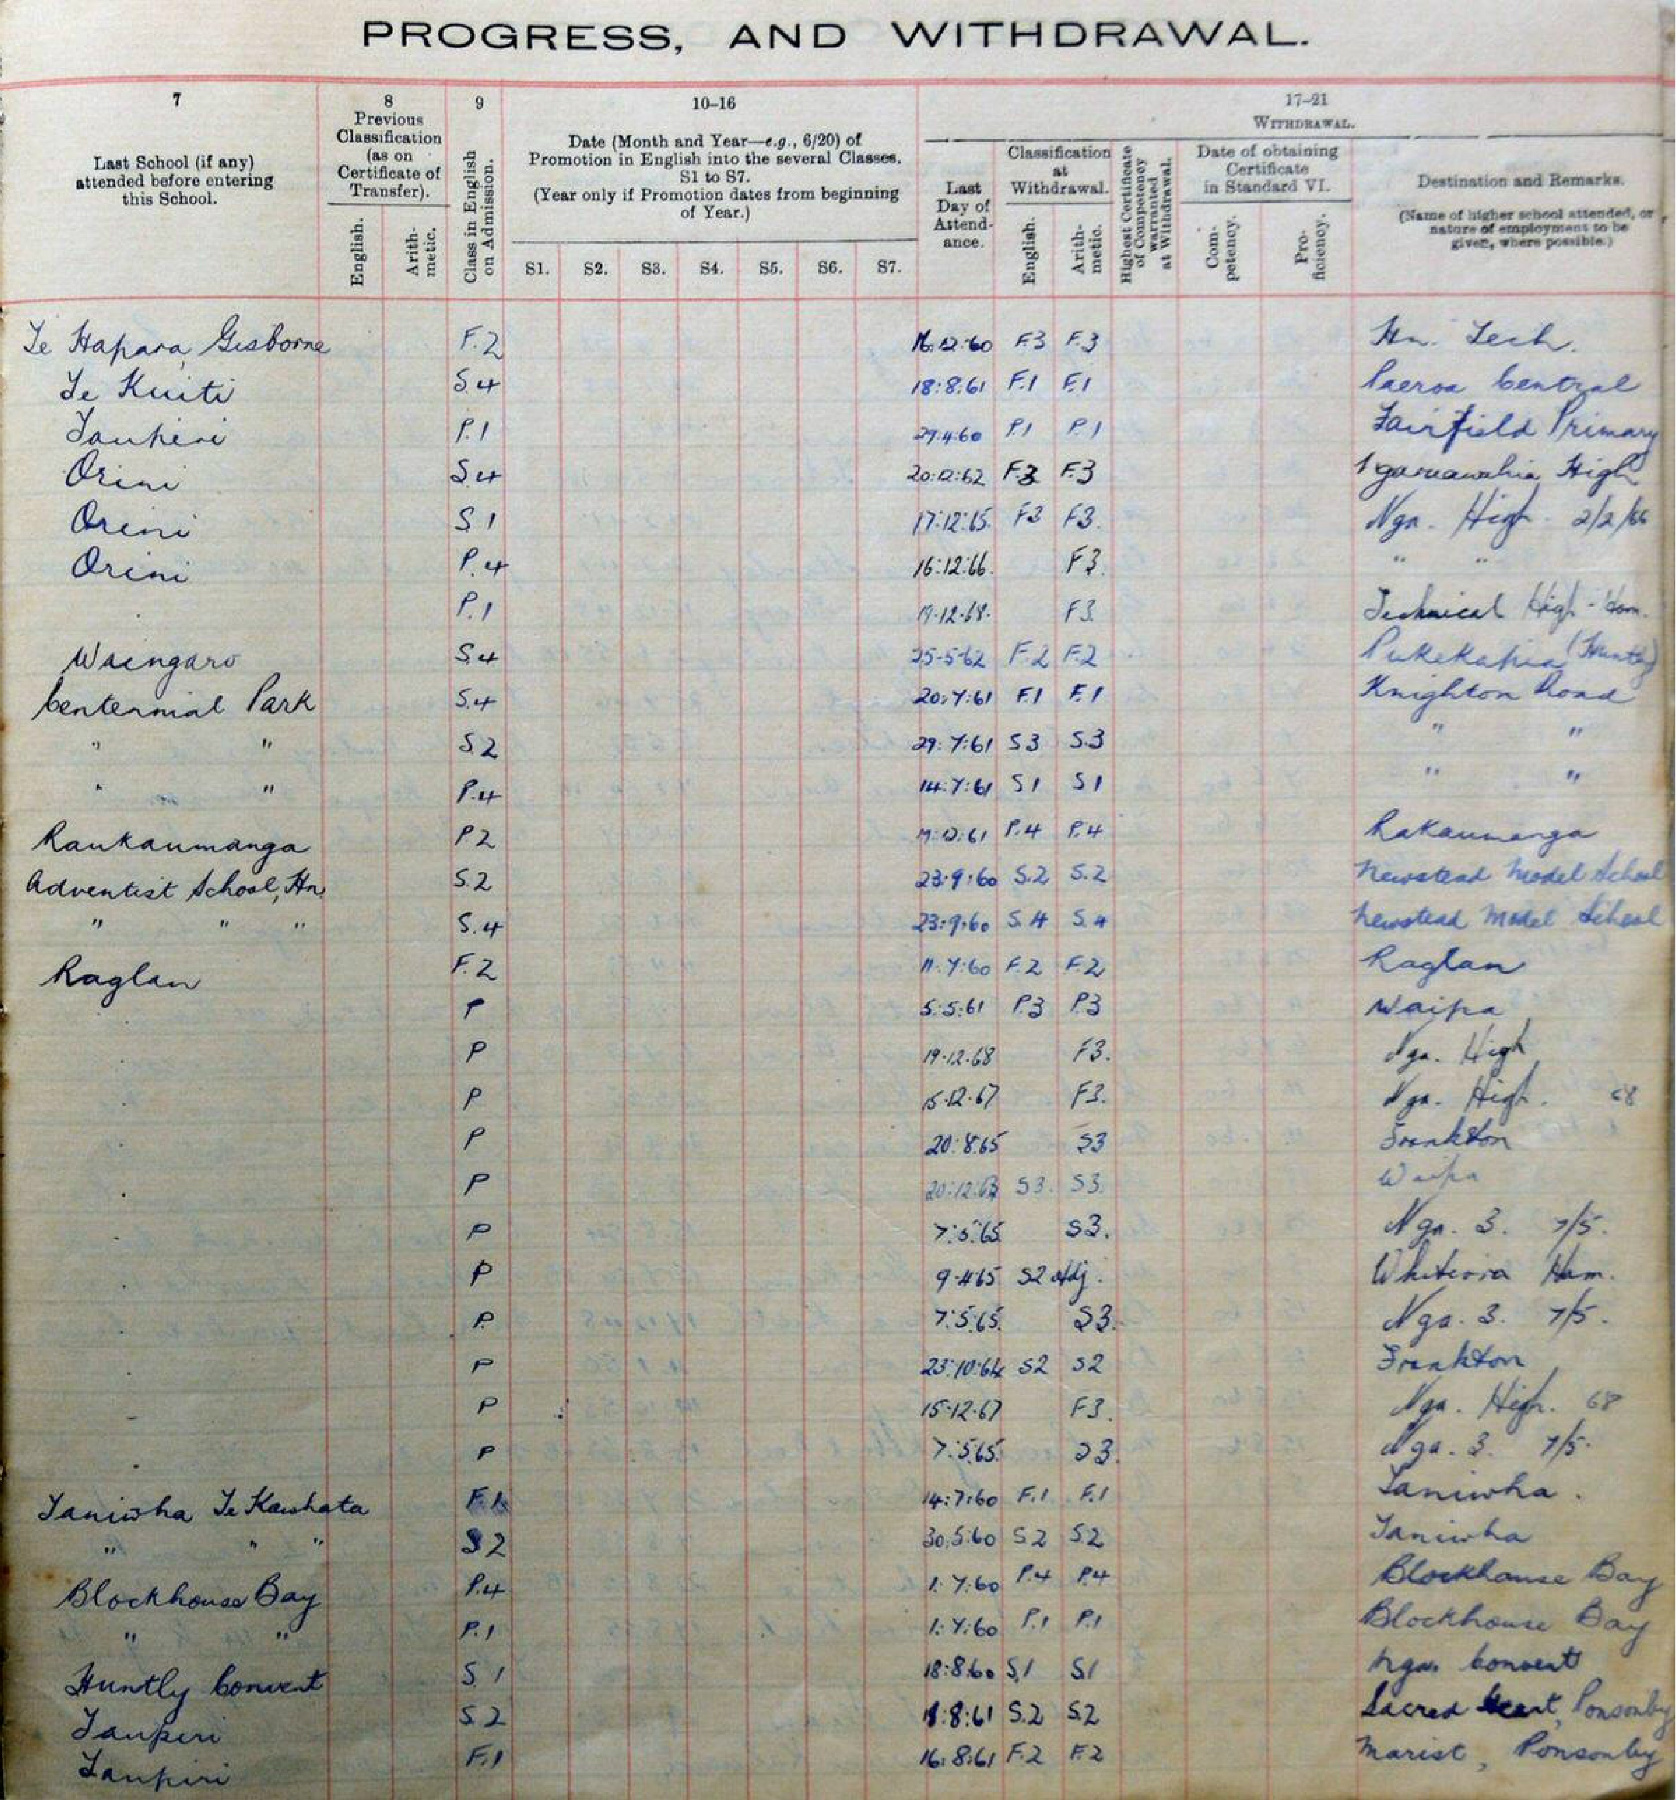 PROGRESS, AND WITHDRAWAL.
7 8 9 10–16 17–21
Last School (if any) attended before entering this School.
Previous Classification (as on Certificate of Transfer).
English. Arith-metic.
Class in English on Admission.
Date (Month and Year—e.g., 6/20) of Promotion in English into the several Classes. S1 to S7.
(Year only if Promotion dates from beginning of Year.)
S1. S2. S3. S4. S5. S6. S7.
WITHDRAWAL.
Last Day of Attend-ance.
Classification at Withdrawal.
English. Arith-metic.
Highest Certificate of Competency warranted at Withdrawal.
Date of obtaining Certificate in Standard VI.
Com-petency. Pro-ficiency.
Destination and Remarks.
(Name of higher school attended, or nature of employment to be given, where possible.)
Te Hapara, Gisborne F.2 16:12:60 F.3 F.3 Hn. Tech.
Te Kuiti S4 18:8:61 F.1 F.1 Paeroa Central
Taupiri P.1 29:4:60 P.1 P.1 Fairfield Primary
Orini S4 20:12:62 F.3 F.3 Ngaruawahia High
Orini S1 17:12:65 F3 F3. Nga. High 2/2/66
Orini P.4 16:12:66. F3. " "
P.1 19-12-68. F3. Technical High - Ham.
Waingaro S.4 25-5-62 F.2 F.2 Pukekapia (Huntly)
Centennial Park S.4 20:7:61 F.1 F.1 Knighton Road
" " S.2 29:7:61 S3 S.3 " "
" " P.4 14:7:61 S1 S1 " "
Raukaumanga P2 P.4 P.4 Rakaumanga
Adventist School, Hn. S.2 23:9:60 S.2 S.2 Newstead Model School
" " " S.4 23:9:60 S.4 S.4 Newstead Model School
Raglan F.2 11:7:60 F.2 F.2 Raglan
P 5:5:61 P.3 P.3 Waipa
P 19-12-68 F3. Nga. High
P 15-12-67 F3. Nga. High. 68
P 20:8:65 S3 Frankton
P 20:12:63 S3. S3. Waipa
P 7:5:65 S3. Nga. 3. 7/5.
P 9-4-65 S2 Adj. Whitiora Ham.
P. 7:5:65. S3. Nga. 3. 7/5.
P 23:10:64 S2 S2 Frankton
P 15-12-67 F3. Nga. High. 68
P 7:5:65. S3. Nga. 3. 7/5.
Taniwha Te Kauwhata F.1 14:7:60 F.1 F.1 Taniwha.
" " " S2 30:5:60 S2 S2 Taniwha
Blockhouse Bay P.4 1:7:60 P.4 P.4 Blockhouse Bay
" " P.1 1:7:60 P.1 P.1 Blockhouse Bay
Huntly Convent S.1 18:8:60 S.1 S1 Nga. Convent
Taupiri S2 18:8:61 S.2 S.2 Sacred Heart, Ponsonby
Taupiri F.1 16:8:61 F.2 F.2 Marist, Ponsonby